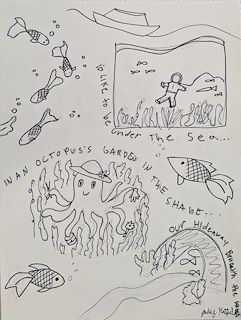 I'D LIKE TO BE
UNDER THE SEA...
IN AN OCTOPUS'S GARDEN IN THE SHADE...
OUR HIDEAWAY BENEATH THE